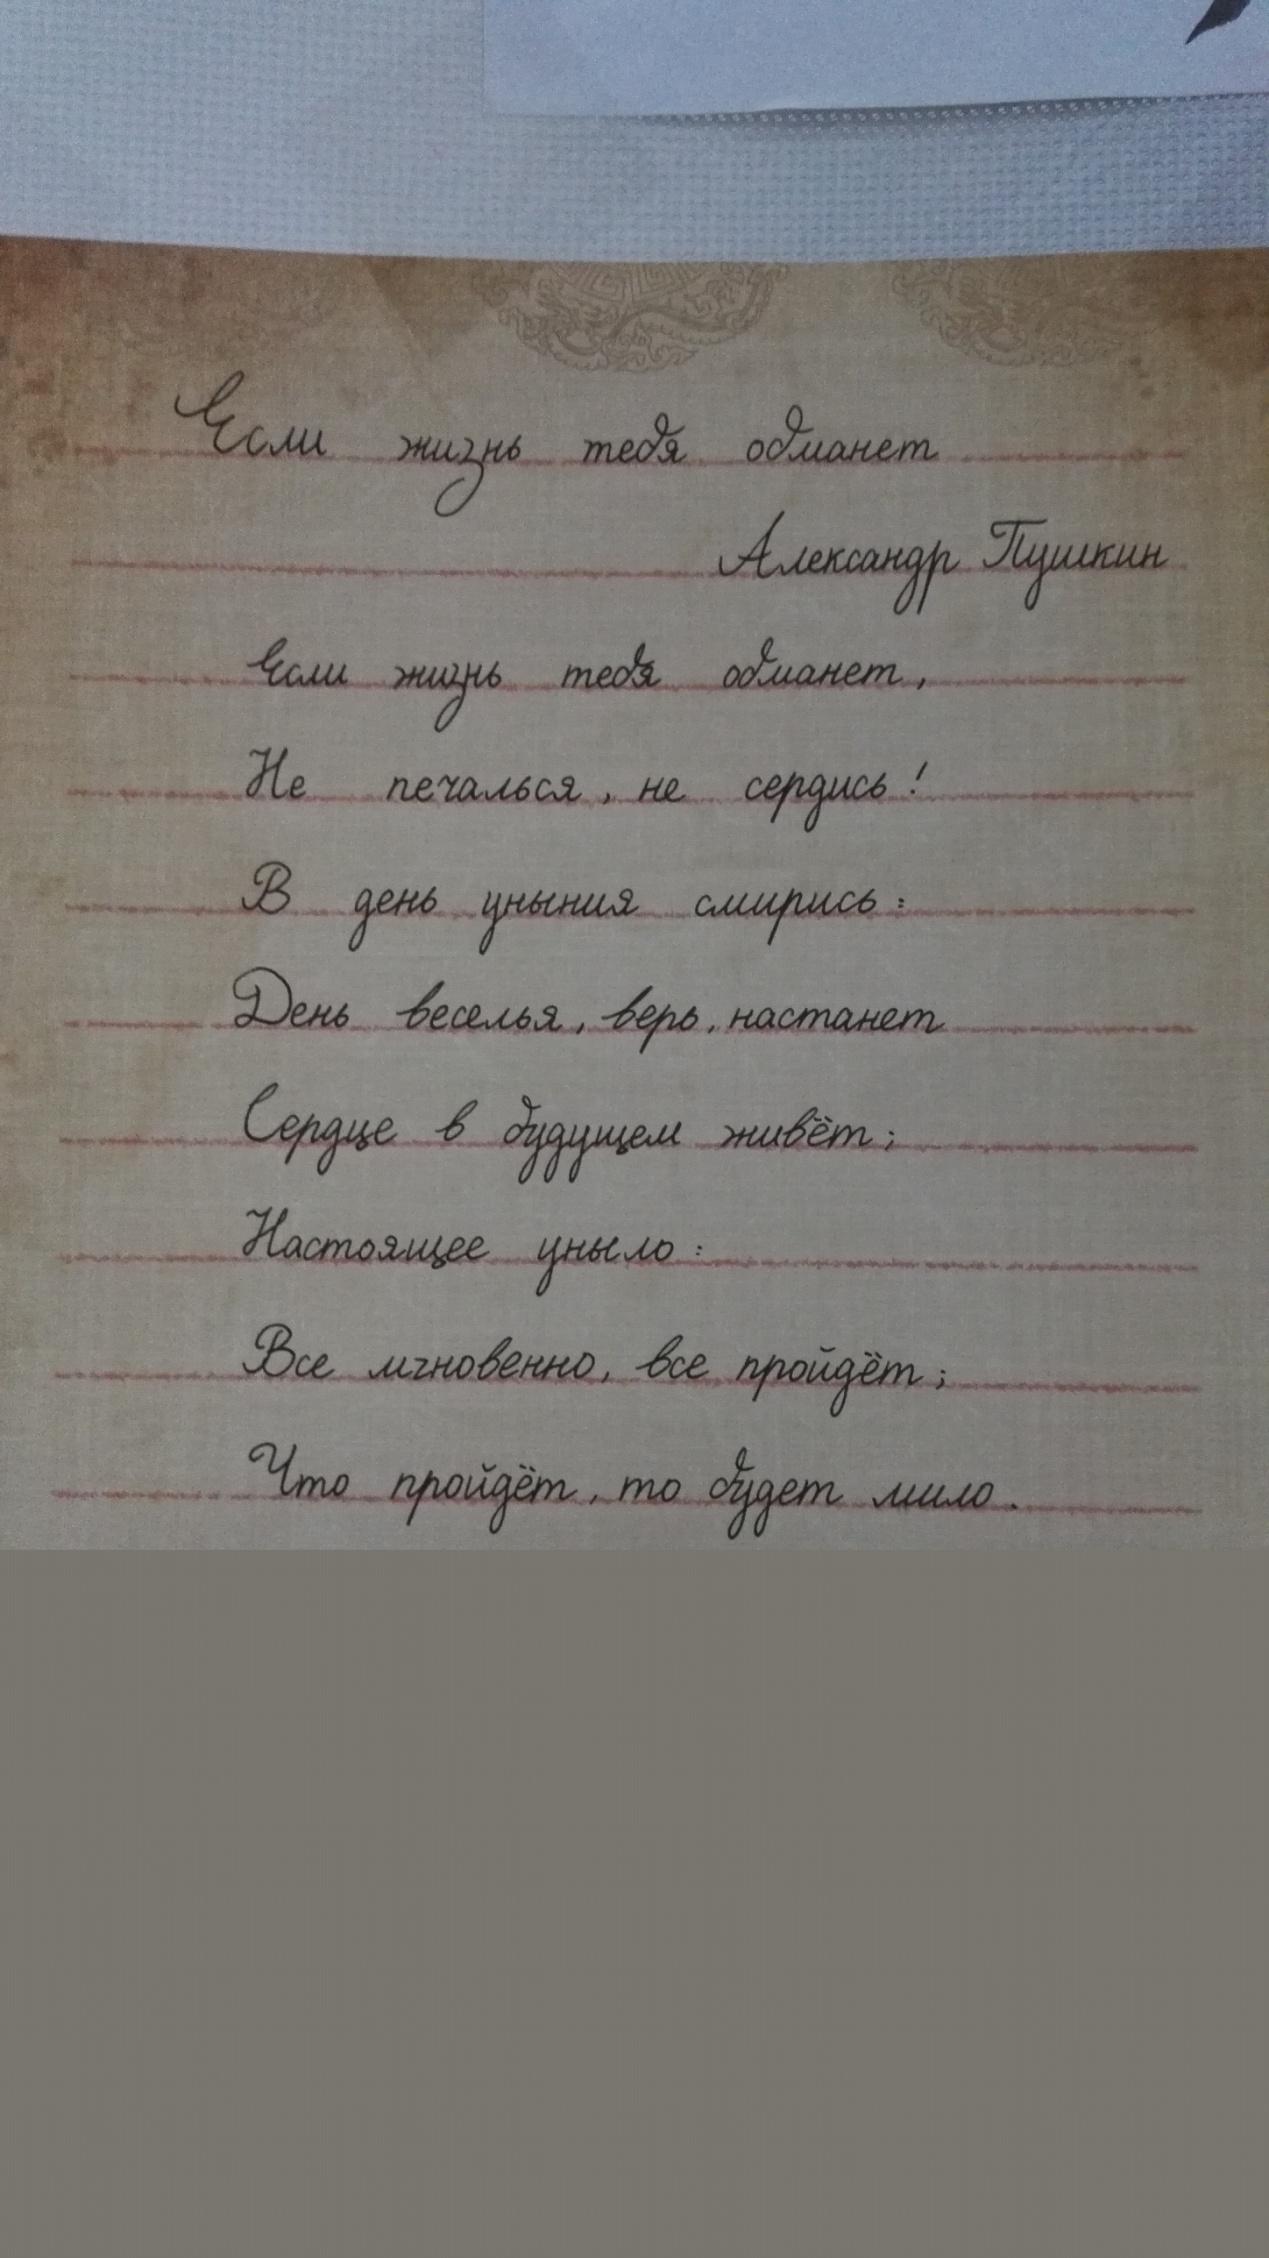 Если жизнь тебя обманет
Александр Пушкин
Если жизнь тебя обманет,
Не печалься, не сердись!
В день уныния смирись:
День веселья, верь, настанет
Сердце в будущем живёт;
Настоящее уныло:
Все мгновенно, все пройдёт;
Что пройдёт, то будет мило.